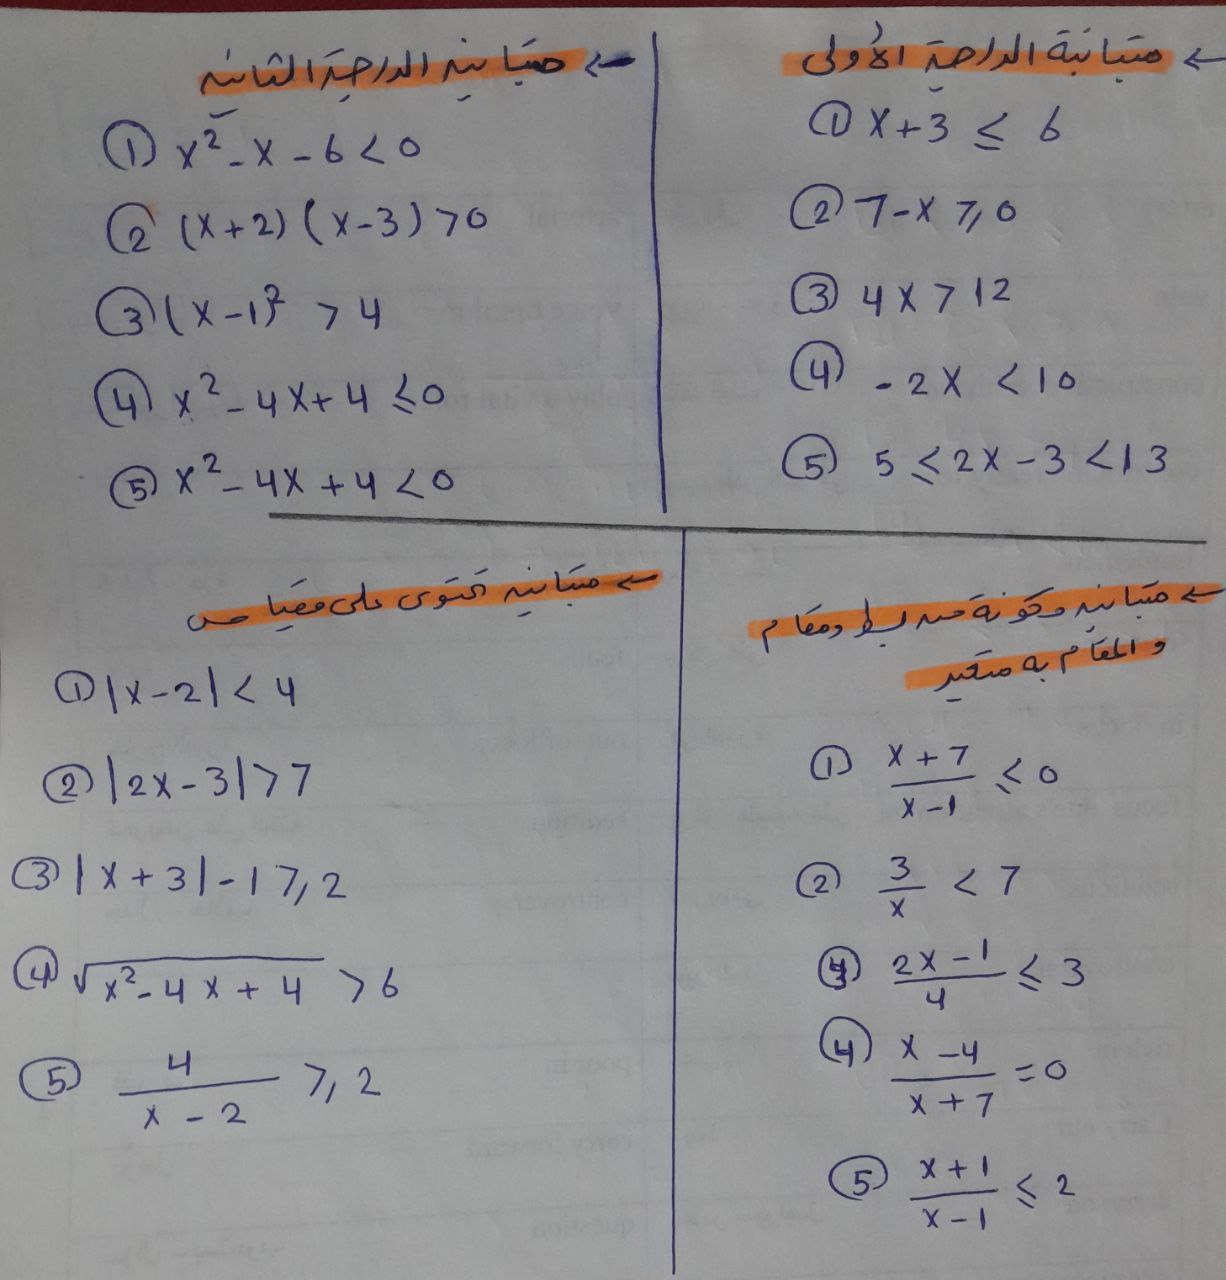 ← متباينة الدرجة الأولى
① x + 3 ≤ 6
② 7 - x ≥ 0
③ 4x > 12
④ - 2x < 10
⑤ 5 ≤ 2x - 3 < 13
← متباينه الدرجة الثانيه
① x² - x - 6 < 0
② (x + 2) (x - 3) > 0
③ (x - 1)² > 4
④ x² - 4x + 4 ≤ 0
⑤ x² - 4x + 4 < 0
← متباينه مكونة من بسط ومقام
والمقام به متغير
① (x + 7)/(x - 1) ≤ 0
② 3/x < 7
③ (2x - 1)/4 ≤ 3
④ (x - 4)/(x + 7) = 0
⑤ (x + 1)/(x - 1) ≤ 2
← متباينه تحتوى على مقياس
① |x - 2| < 4
② |2x - 3| > 7
③ |x + 3| - 1 ≥ 2
④ √(x² - 4x + 4) > 6
⑤ 4/(x - 2) ≥ 2